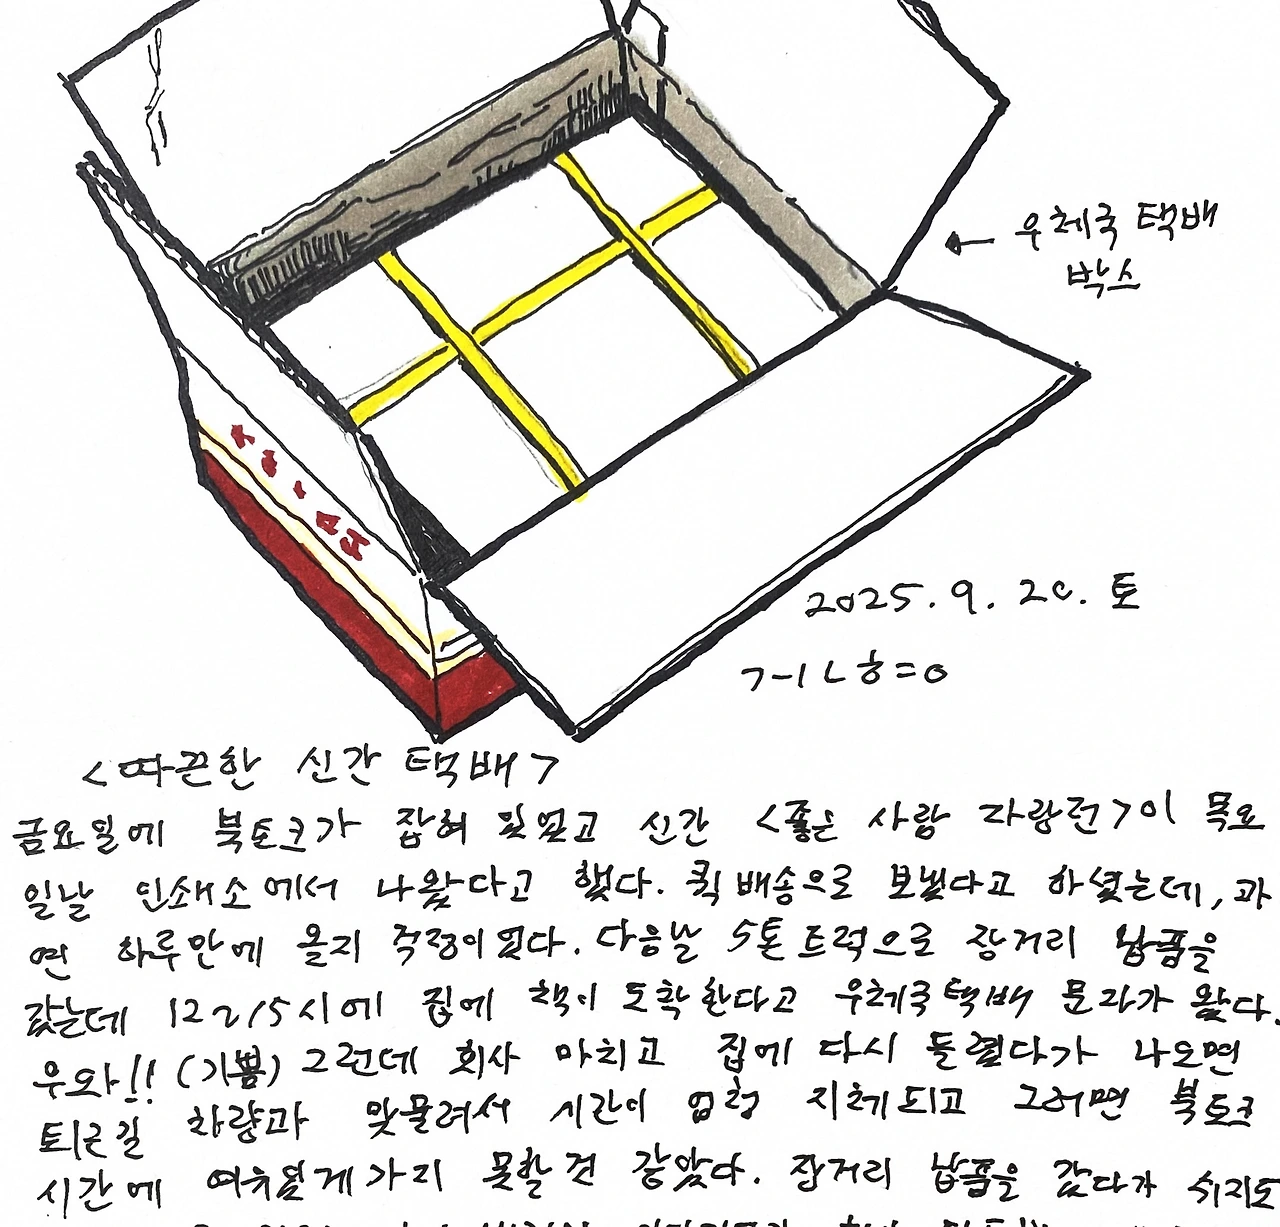 우체국 택배
박스
2025. 9. 20. 토
<따끈한 신간 택배>
금요일에 북토크가 잡혀 있었고 신간 <좋은 사람 자랑전>이 목요
일날 인쇄소에서 나왔다고 했다. 퀵배송으로 보냈다고 하셨는데, 과
연 하루만에 올지 걱정이었다. 다음날 5톤트럭으로 장거리 납품을
갔는데 12 시에 집에 책이 도착한다고 우체국택배 문자가 왔다.
우와!! (기쁨) 그런데 회사 마치고 집에 다시 들렸다가 나오면
퇴근길 차량과 맞물려서 시간이 엄청 지체되고 그러면 북토크
시간에 여유롭게 가지 못할 것 같았다. 장거리 납품을 갔다가 쉬지도